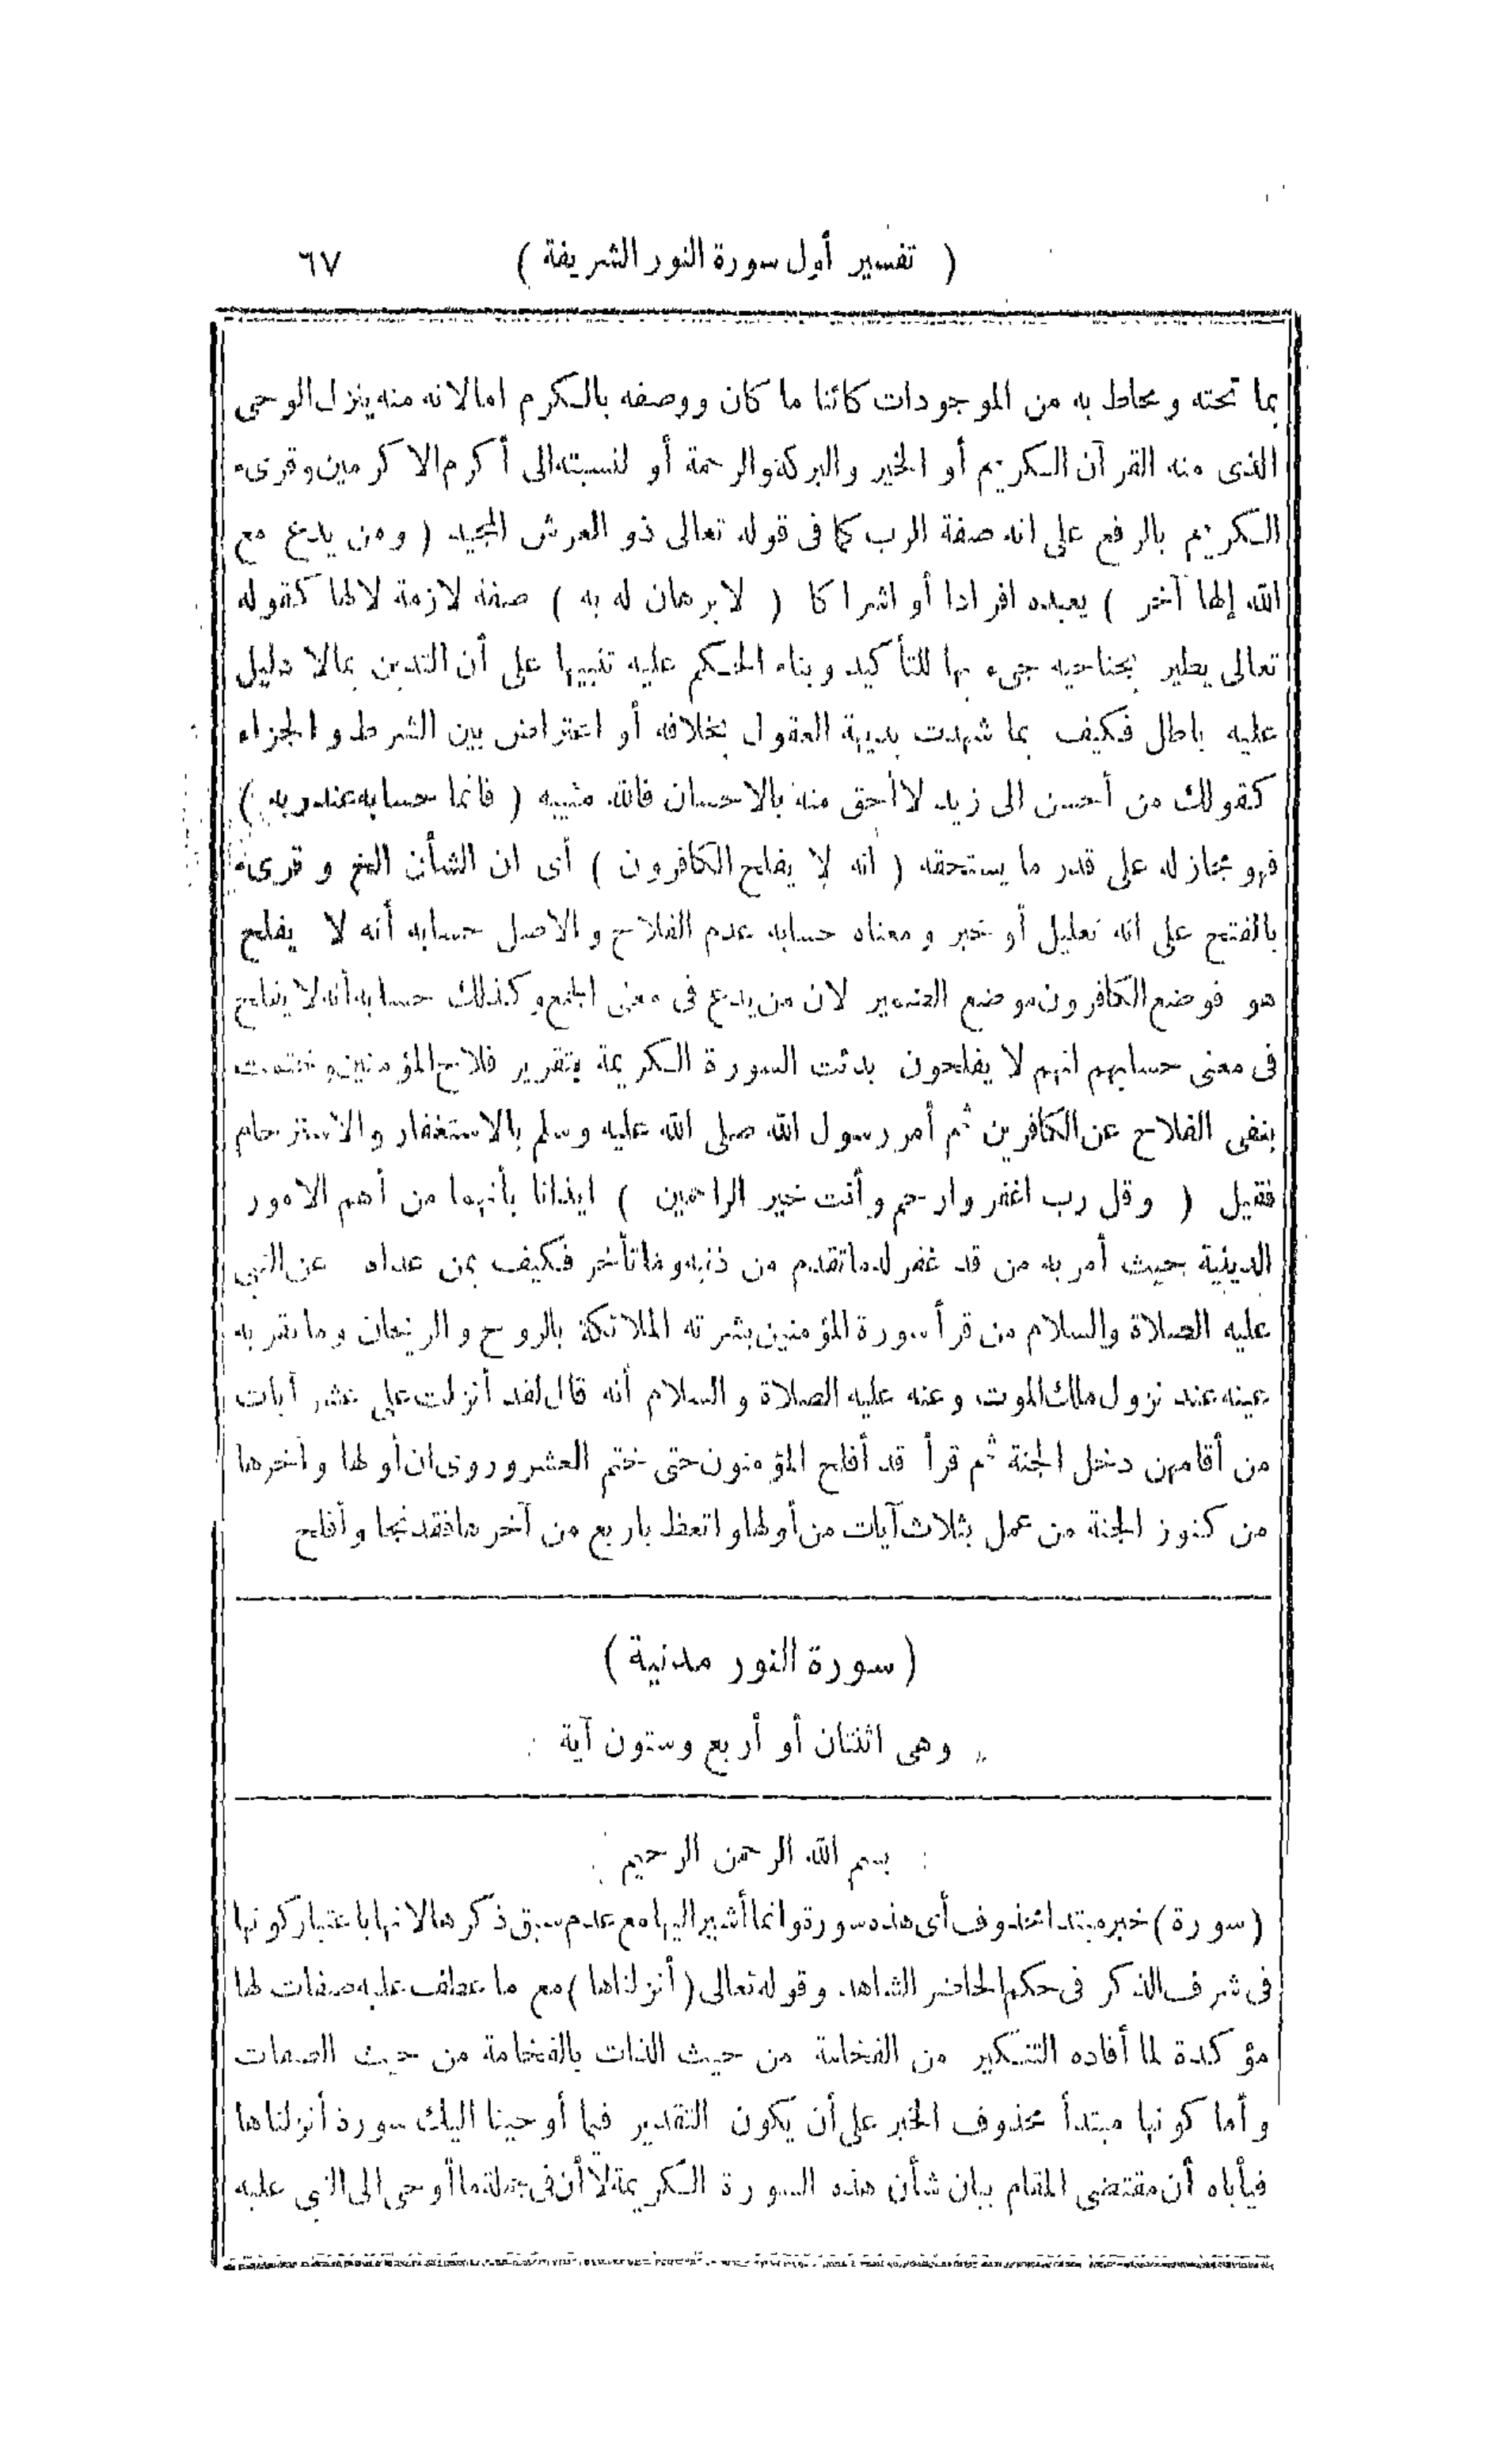 ( تفسير أول سورة النور الشريفة ) ٦٧
بما تحته ومحاط به من الموجودات كائنا ما كان ووصفه بالكرم اما لانه منه ينزل الوحى
الذى منه القرآن الكريم أو الخير والبركة والرحمة أو لنسبته الى أكرم الاكرمين وقرىء
الكريم بالرفع على انه صفة الرب كما فى قوله تعالى ذو العرش المجيد ( ومن يدع مع
الله إلها آخر ) يعبده افرادا أو اشراكا ( لا برهان له به ) صفة لازمة لالها كقوله
تعالى يطير بجناحيه جىء بها للتأكيد وبناء الحكم عليه تنبيها على أن التدين بمالا دليل
عليه باطل فكيف بما شهدت بديهة العقول بخلافه أو اعتراض بين الشرط والجزاء
كقولك من أحسن الى زيد لا أحق منه بالاحسان فالله مثيبه ( فانما حسابه عند ربه )
فهو مجاز له على قدر ما يستحقه ( انه لا يفلح الكافرون ) أى ان الشأن الخ وقرىء
بالفتح على انه تعليل أو خبر ومعناه حسابه عدم الفلاح والاصل حسابه أنه لا يفلح
هو فوضع الكافرون موضع الضمير لان من يدع فى معنى الجمع وكذلك حسابه أنه لا يفلح
فى معنى حسابهم انهم لا يفلحون بدئت السورة الكريمة بتقرير فلاح المؤمنين وختمت
بنفى الفلاح عن الكافرين ثم أمر رسول الله صلى الله عليه وسلم بالاستغفار والاسترحام
فقيل ( وقل رب اغفر وارحم وأنت خير الراحمين ) ايذانا بأنهما من أهم الامور
الدينية بحيث أمر به من قد غفر له ما تقدم من ذنبه وما تأخر فكيف بمن عداه عن النبى
عليه الصلاة والسلام من قرأ سورة المؤمنين بشرته الملائكة بالروح والريحان وما تقر به
عينه عند نزول ملك الموت وعنه عليه الصلاة والسلام أنه قال لقد أنزلت على عشر آيات
من أقامهن دخل الجنة ثم قرأ قد أفلح المؤمنون حتى ختم العشر وروى ان أولها وآخرها
من كنوز الجنة من عمل بثلاث آيات من أولها واتعظ باربع من آخرها فقد نجا وأفلح
( سورة النور مدنية )
وهى اثنتان أو أربع وستون آية
بسم الله الرحمن الرحيم
( سورة ) خبر مبتدا محذوف أى هذه سورة وانما أشير اليها مع عدم سبق ذكرها لانها باعتبار كونها
فى شرف الذكر فى حكم الحاضر الشاهد وقوله تعالى ( أنزلناها ) مع ما عطف عليه صفات لها
مؤكدة لما أفاده التنكير من الفخامة من حيث الذات بالفخامة من حيث الصفات
وأما كونها مبتدأ محذوف الخبر على أن يكون التقدير فيما أوحينا اليك سورة أنزلناها
فيأباه أن مقتضى المقام بيان شأن هذه السورة الكريمة لا أن فى جملة ما أوحى الى النبى عليه